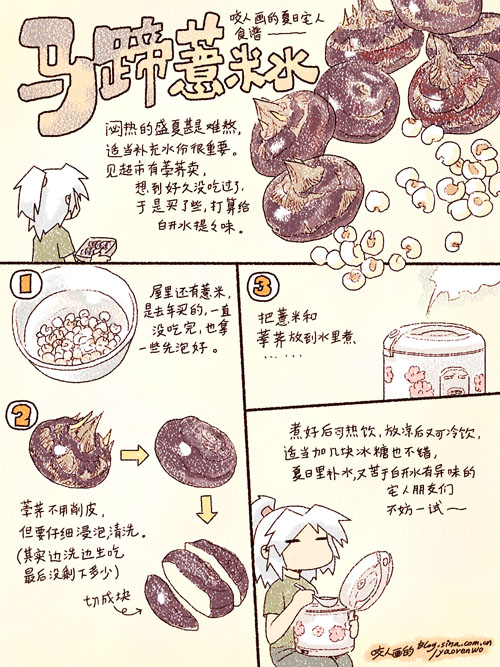 咬人画的夏日宅人
食谱——
马蹄薏米水
闷热的盛夏甚是难熬,
适当补充水份很重要。
见超市有荸荠卖,
想到好久没吃过了,
于是买了些,打算给
白开水提提味。
1
屋里还有薏米,
是去年买的,一直
没吃完,也拿
一些先泡好。
2
荸荠不用削皮,
但要仔细浸泡清洗。
(其实边洗边生吃
最后没剩下多少)
切成块
3
把薏米和
荸荠放到水里煮
......
煮好后可热饮,放凉后又可冷饮,
适当加几块冰糖也不错,
夏日里补水,又苦于白开水有异味的
宅人朋友们
不妨一试~
咬人画的 blog.sina.com.cn
/yaorenwo